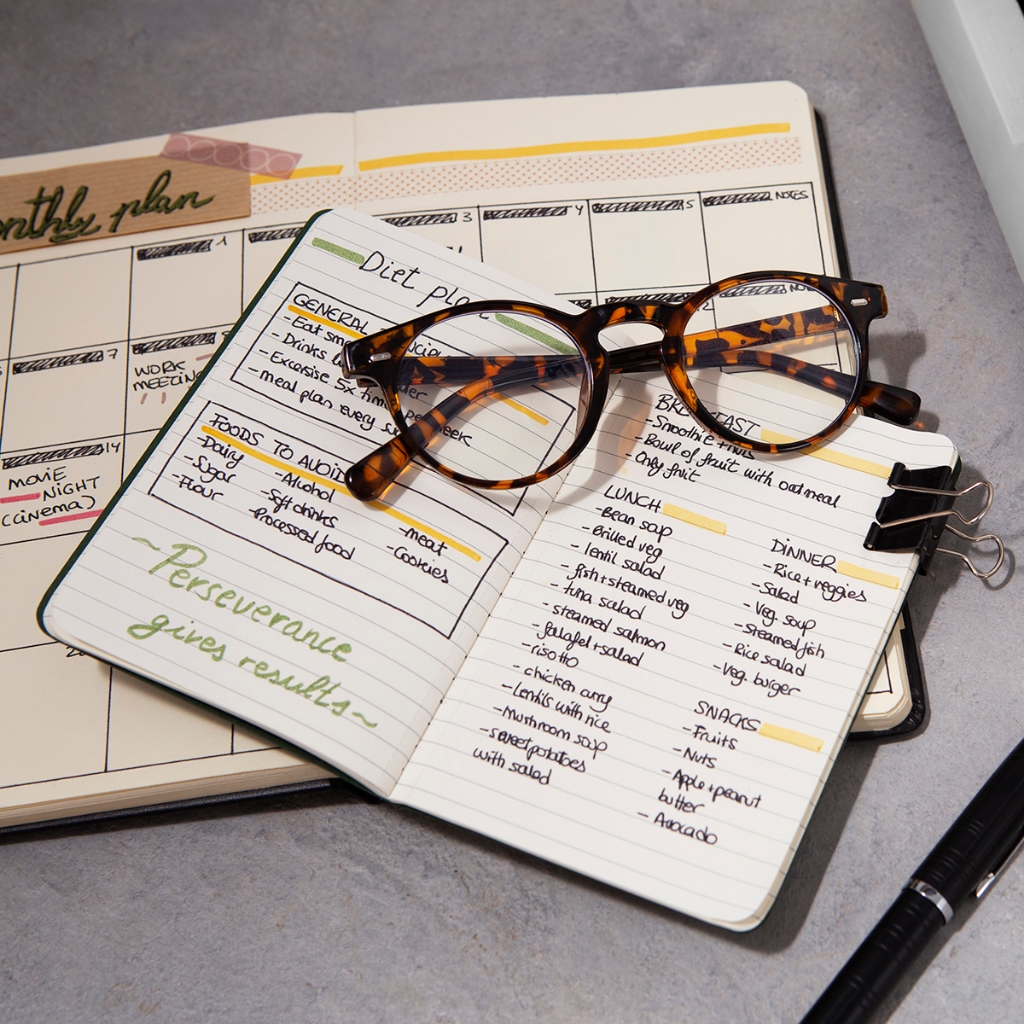 onthly plan
1
3
4
5
NOTES
7
WORK
MEETING
14
MOVIE
NIGHT
(CINEMA)
Diet plan
GENERAL
- Eat
- Drinks
- Excersise 5x
- meal plan every
FOODS TO AVOID
- Dairy
- Sugar
- Flour
- Alcohol
- Soft drinks
- Processed food
- meat
- Cookies
~Perseverance
gives results~
BREAKFAST
- Smoothie + nuts
- Bowl of fruit with oatmeal
- Only fruit
LUNCH
- Bean soup
- Grilled veg
- lentil salad
- fish + steamed veg
- tuna salad
- steamed salmon
- falafel + salad
- risotto
- chicken curry
- Lentils with rice
- Mushroom soup
- sweet potatoes
with salad
DINNER
- Rice + veggies
- Salad
- Veg. soup
- Steamed fish
- Rice salad
- Veg. burger
SNACKS
- Fruits
- Nuts
- Apple + peanut
butter
- Avocado